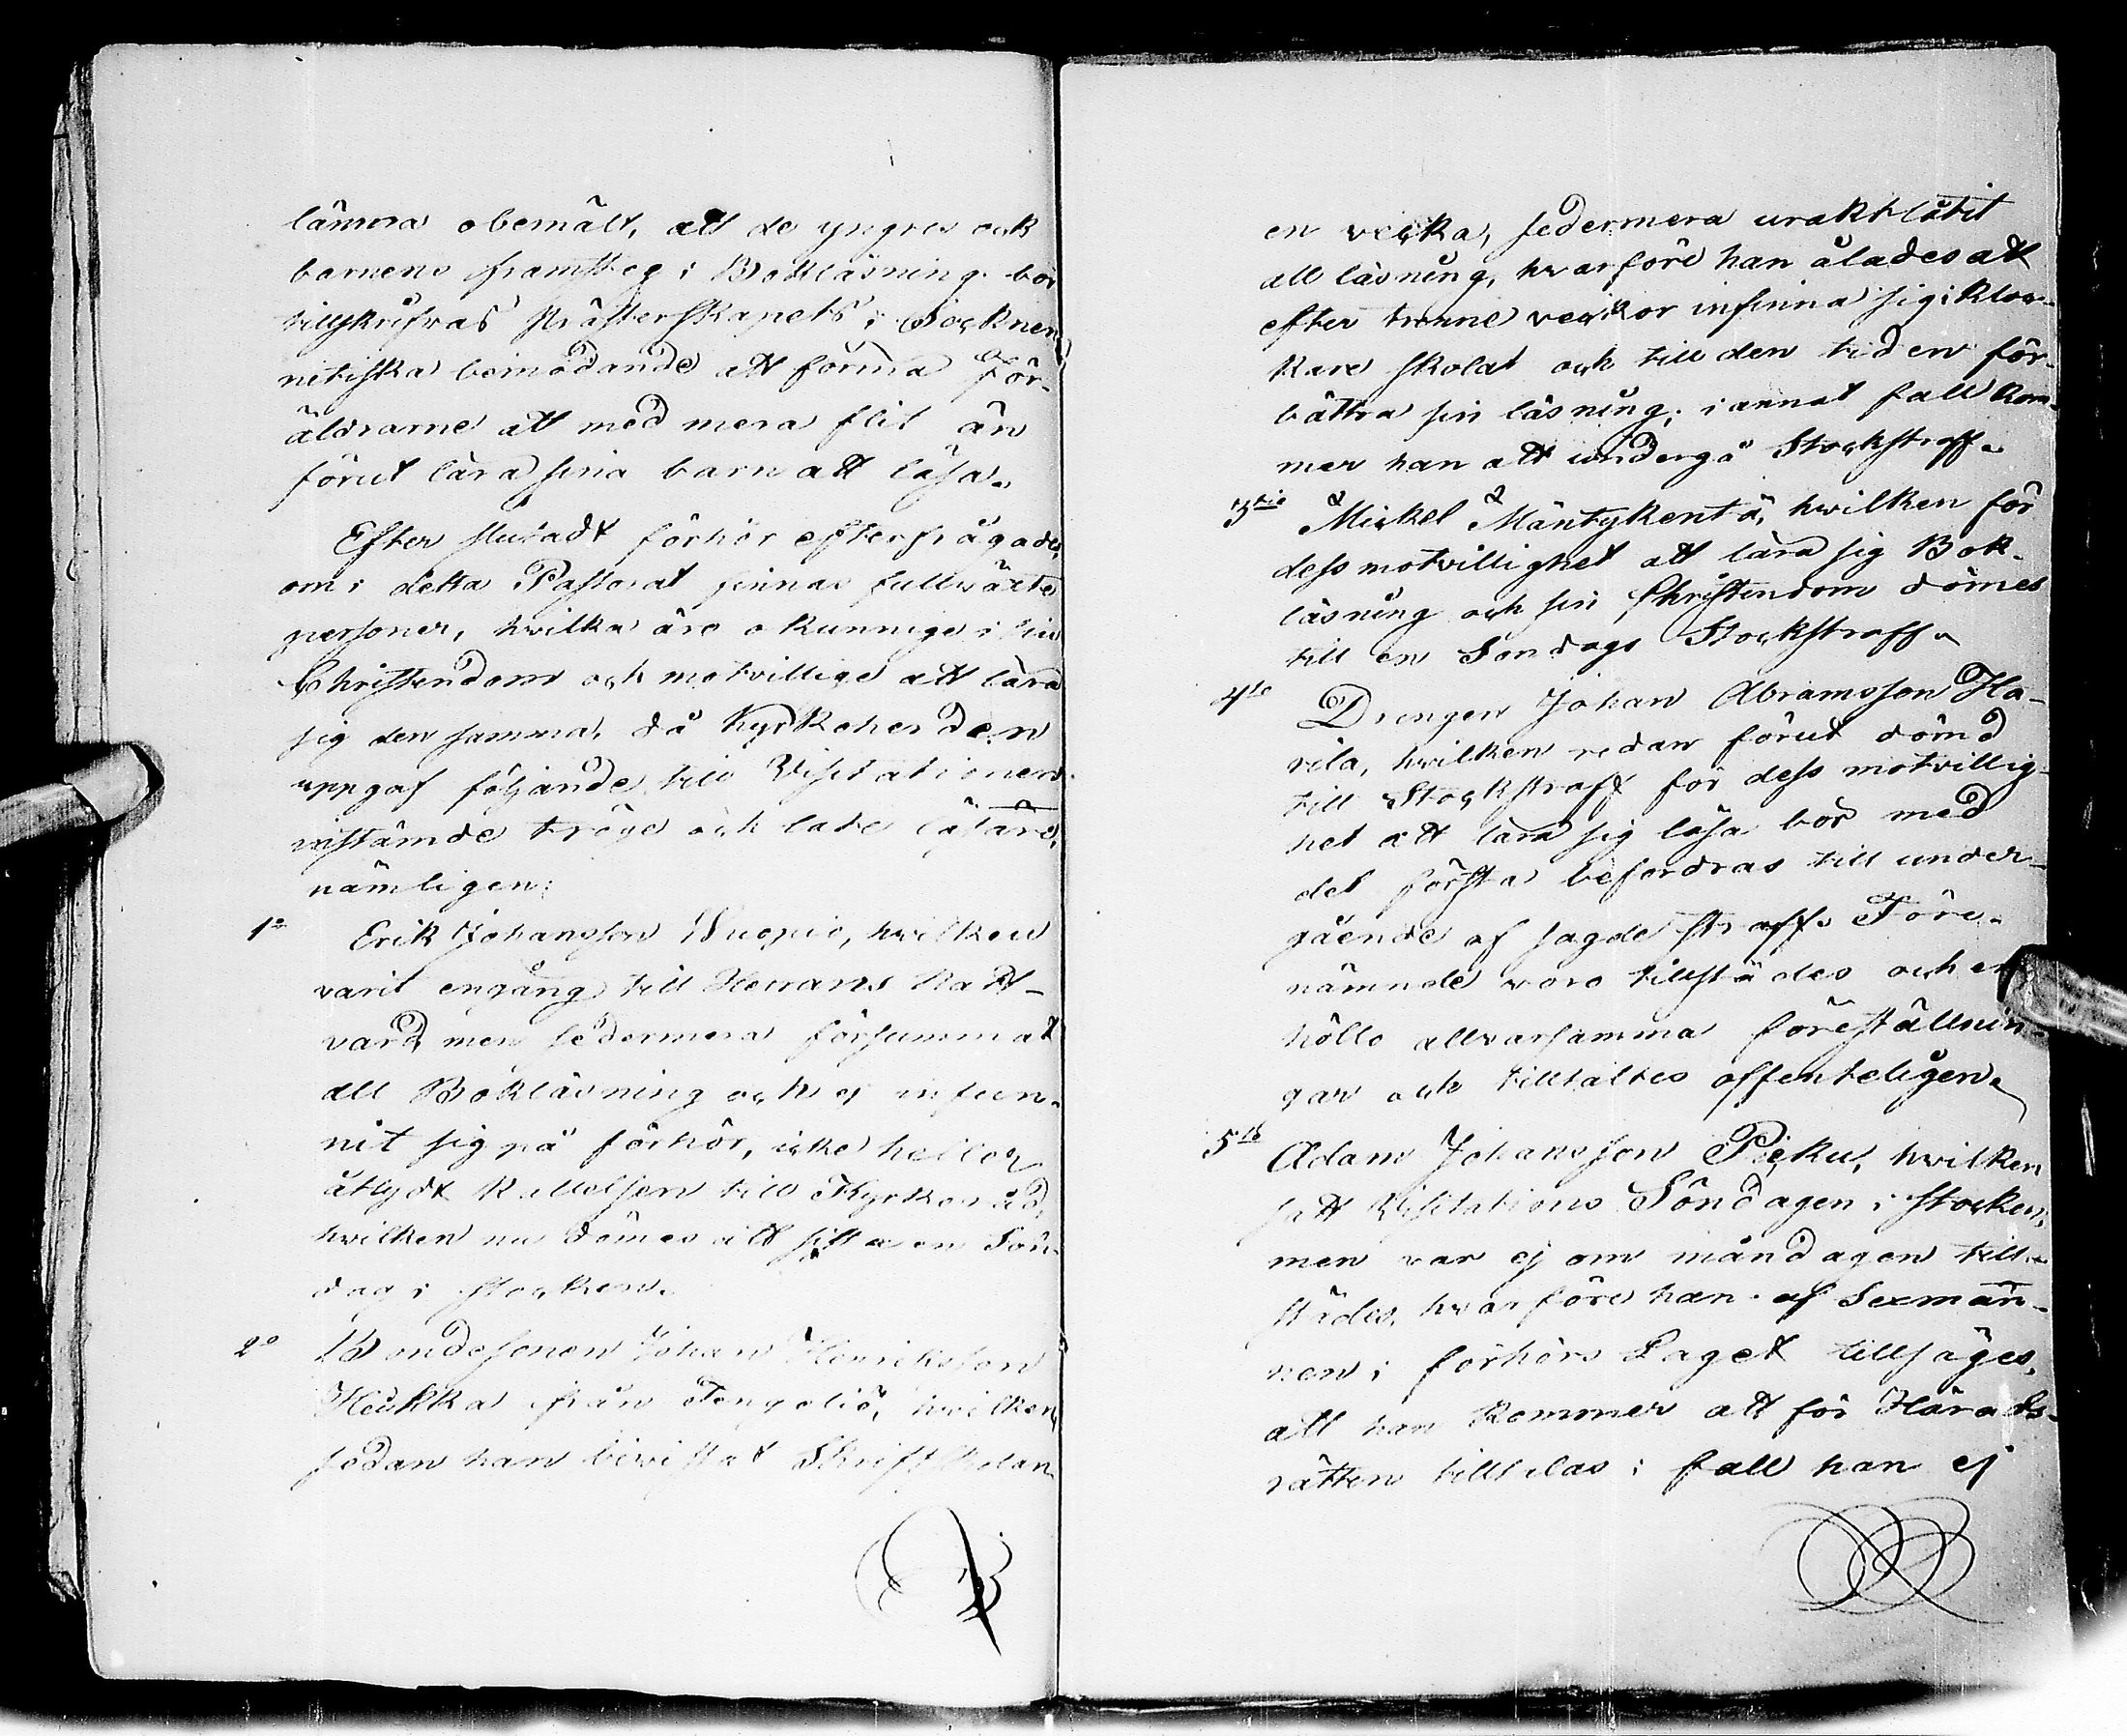 lämna obemält, att de yngres och
barnens framsteg i Bokläsning bör
tillskrifvas Prästerskapets i Socknen
nitiska bemödande att förmå För-
äldrarne att med mera flit än
förut lära sina barn att läsa.
Efter slutadt förhör efterfrågades,
om i detta Pastorat finnas fullväxte
personer, hvilka äro okunnige i sin
Christendom och motvillige att lära
sig den samma, då Kyrkoherden
uppgaf följande till Visitationen
instämde tröge och late läsare,
nämligen:
1o Erik Johansson Wuopio, hvilken
varit engång till Herrans Natt-
vard, men sedermera försummat
all Bokläsning och ej infun-
nit sig på förhör, icke heller
åtlydt kallelsen till Kyrkoråd,
hvilken nu dömes att sitta en Sön-
dag i stocken.
2o Bondesonen Johan Henriksson
Heikka från Tengeliö, hvilken,
sedan han bevistat Skriftskolan
en vecka, sedermera uraktlåtit
all läsning, hvarföre han ålades att
efter trenne veckor infinna sig i Kloc-
kare skolat och till den tiden för-
bättra sin läsning; i annat fall kom-
mer han att undergå Stockstraff.
3tie Mickel Mäntykentä, hvilken för
dess motvillighet att lära sig Bok-
läsning och sin Christendom dömes
till en Söndags Stockstraff.
4de Drengen Johan Abramsson Ha-
vila, hvilken redan förut dömd
till Stockstraff för dess motvillig-
het att lära sig läsa bör med
det första befordras till under-
gående af sagde straff. Före-
nämnde voro tillstädes och er-
höllo allvarsamma föreställnin-
gar och tilltaltes offenteligen.
5te Adam Johansson Piecku, hvilken
satt Visitations Söndagen i stocken,
men var ej om måndagen till-
städes, hvarföre han af Sexmän-
nen i förhörs Laget tillsäges,
att han kommer att för Härads-
rätten tilltalas i fall han ej